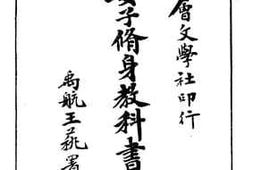 會文學社印行
女子脩身教科書
禹航王蕤署